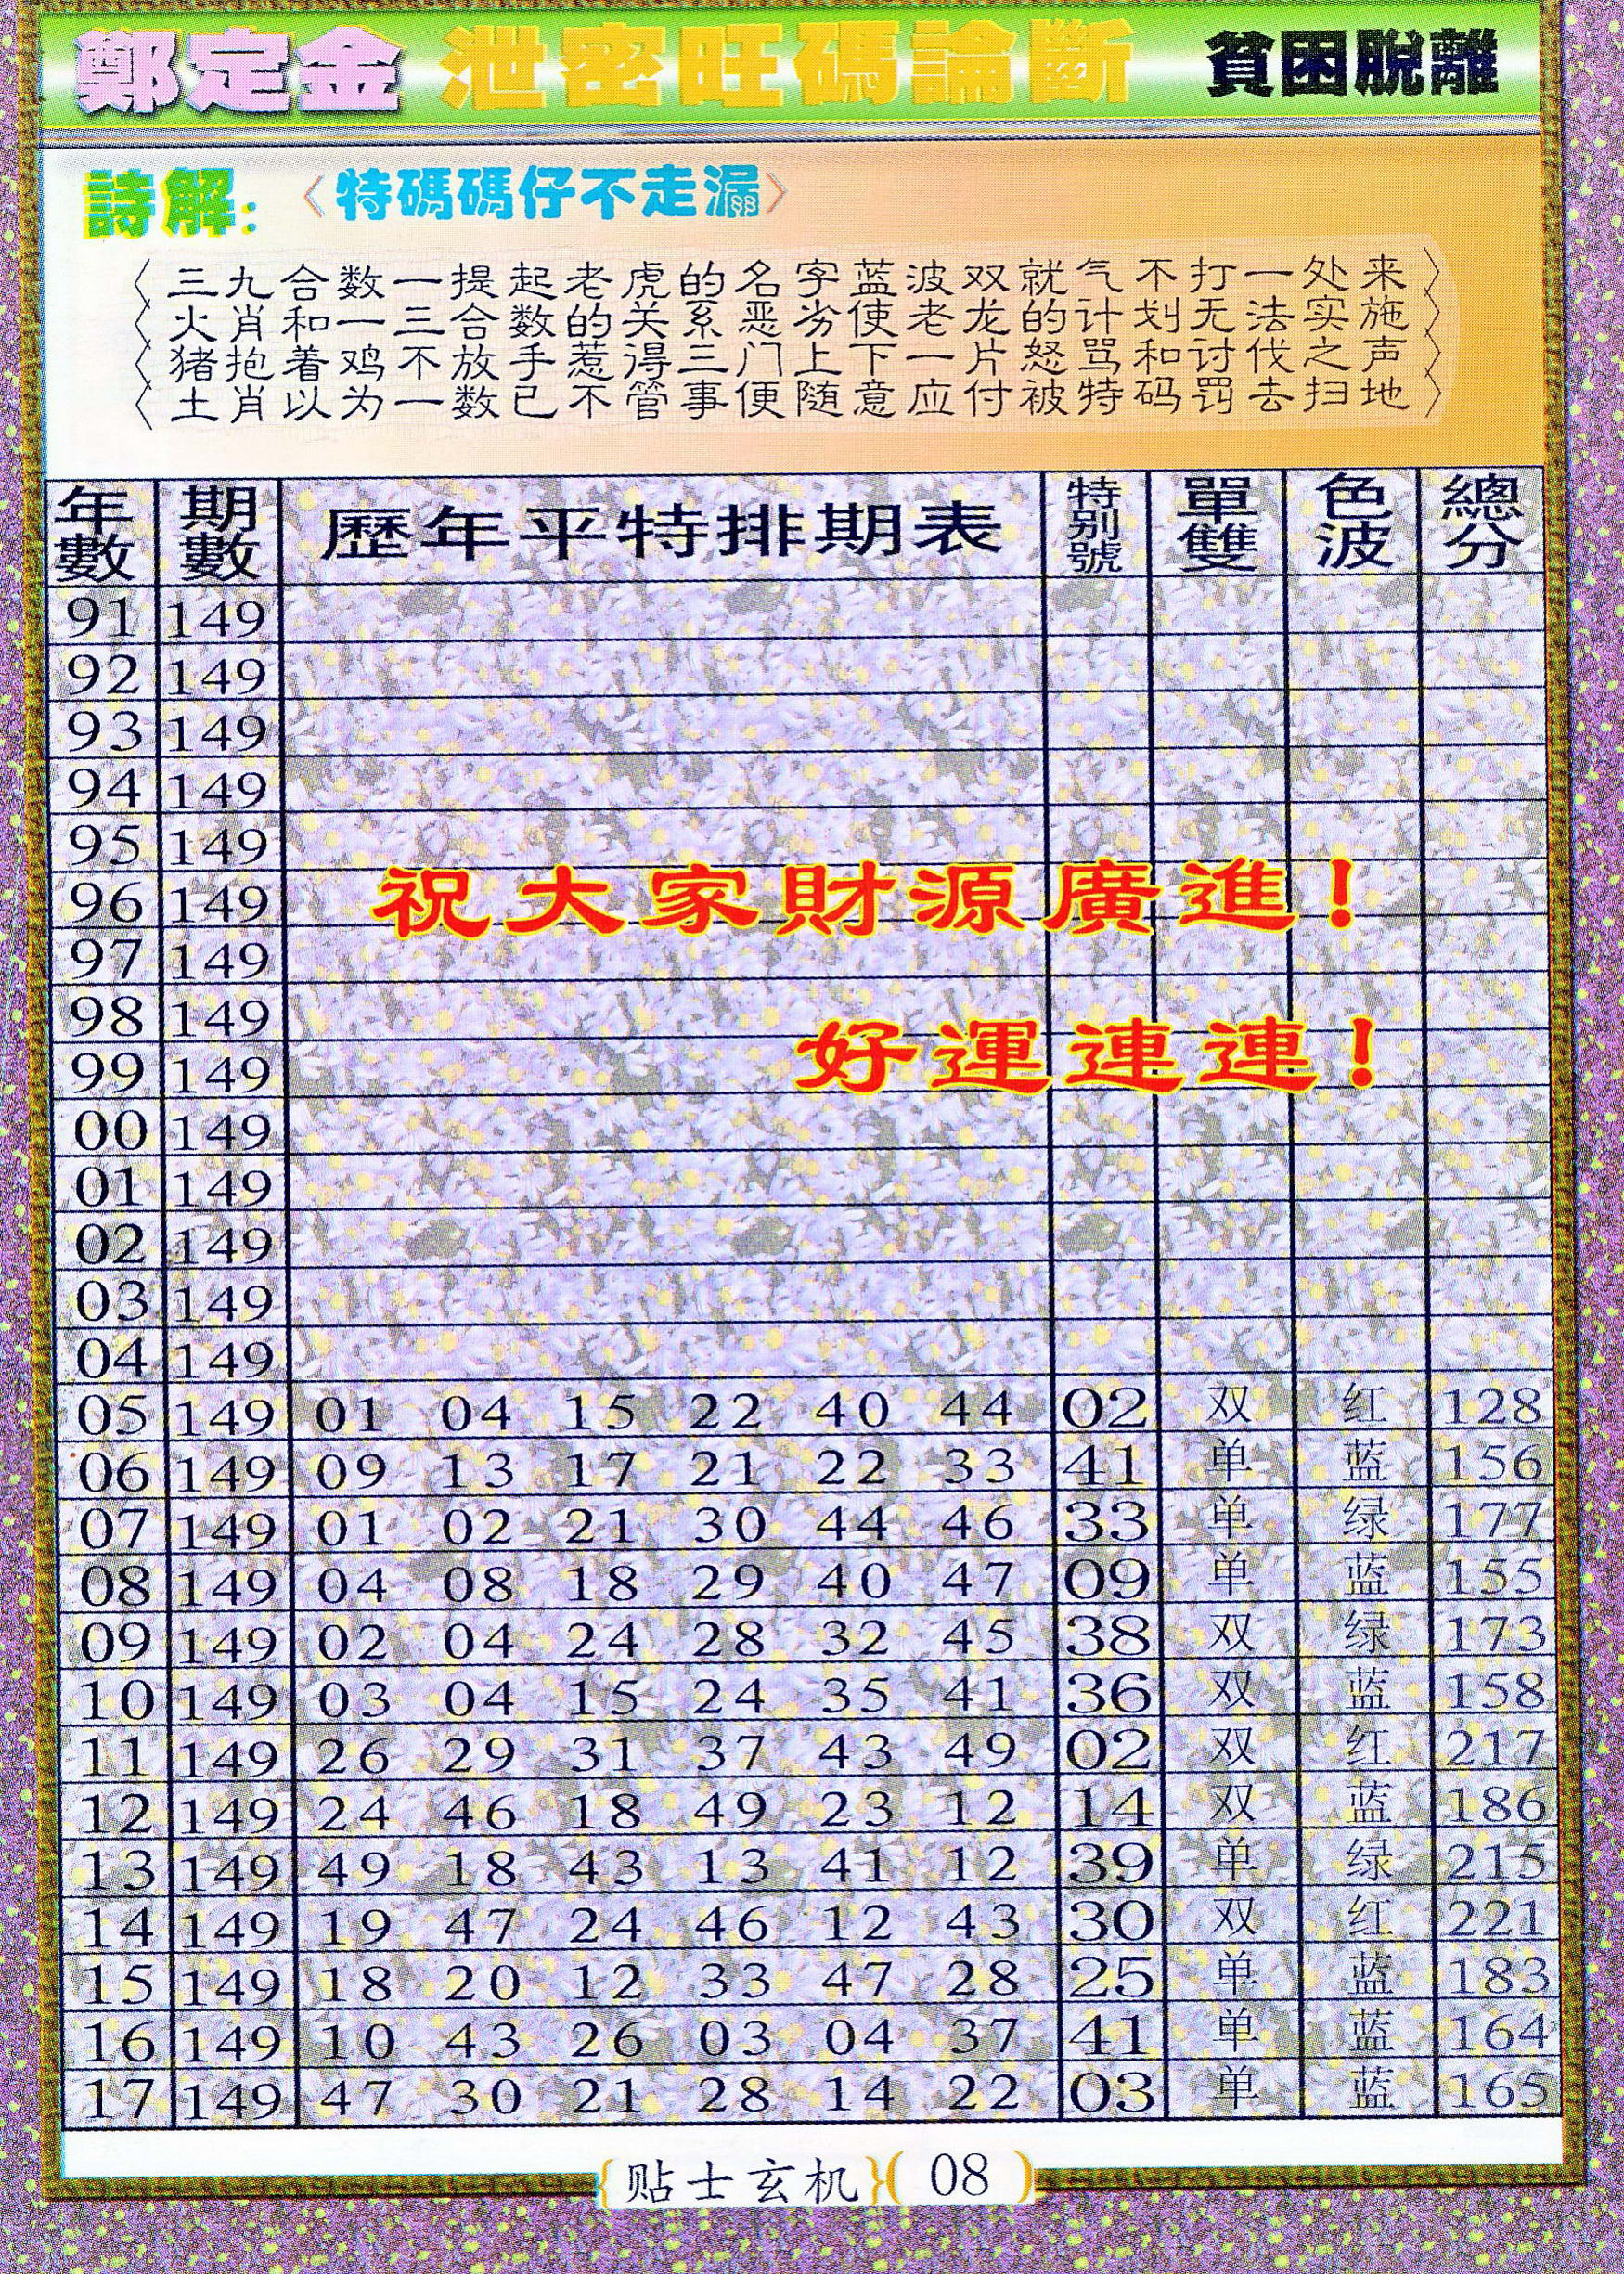 鄭定金 泄密旺碼論斷 貧困脫離
詩解: 〈特碼碼仔不走漏〉
〈三九合数一提起老虎的名字蓝波双就气不打一处来〉
〈火肖和一三合数的关系恶劣使老龙的计划无法实施〉
〈猪抱着鸡不放手惹得三门上下一片怒骂和讨伐之声〉
〈土肖以为一数已不管事便随意应付被特码罚去扫地〉
年數 期數 歷年平特排期表 特别號 單雙 色波 總分
91 149
92 149
93 149
94 149
95 149
96 149
祝大家財源廣進!
97 149
98 149
好運連連!
99 149
00 149
01 149
02 149
03 149
04 149
05 149 01 04 15 22 40 44 02 双 红 128
06 149 09 13 17 21 22 33 41 单 蓝 156
07 149 01 02 21 30 44 46 33 单 绿 177
08 149 04 08 18 29 40 47 09 单 蓝 155
09 149 02 04 24 28 32 45 38 双 绿 173
10 149 03 04 15 24 35 41 36 双 蓝 158
11 149 26 29 31 37 43 49 02 双 红 217
12 149 24 46 18 49 23 12 14 双 蓝 186
13 149 49 18 43 13 41 12 39 单 绿 215
14 149 19 47 24 46 12 43 30 双 红 221
15 149 18 20 12 33 47 28 25 单 蓝 183
16 149 10 43 26 03 04 37 41 单 蓝 164
17 149 47 30 21 28 14 22 03 单 蓝 165
{贴士玄机}(08)